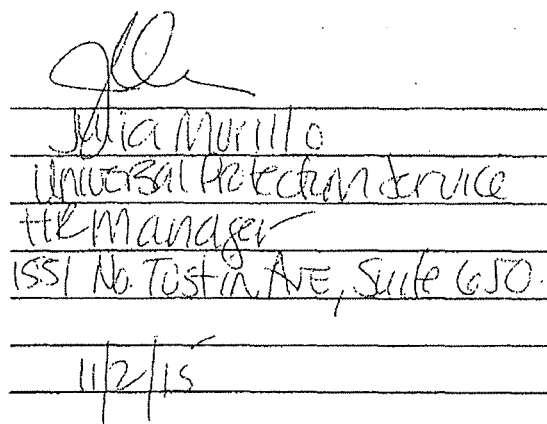 Julia Murillo
Universal Protection Service
HR Manager
1551 No. Tustin Ave, Suite 650.
11/2/15